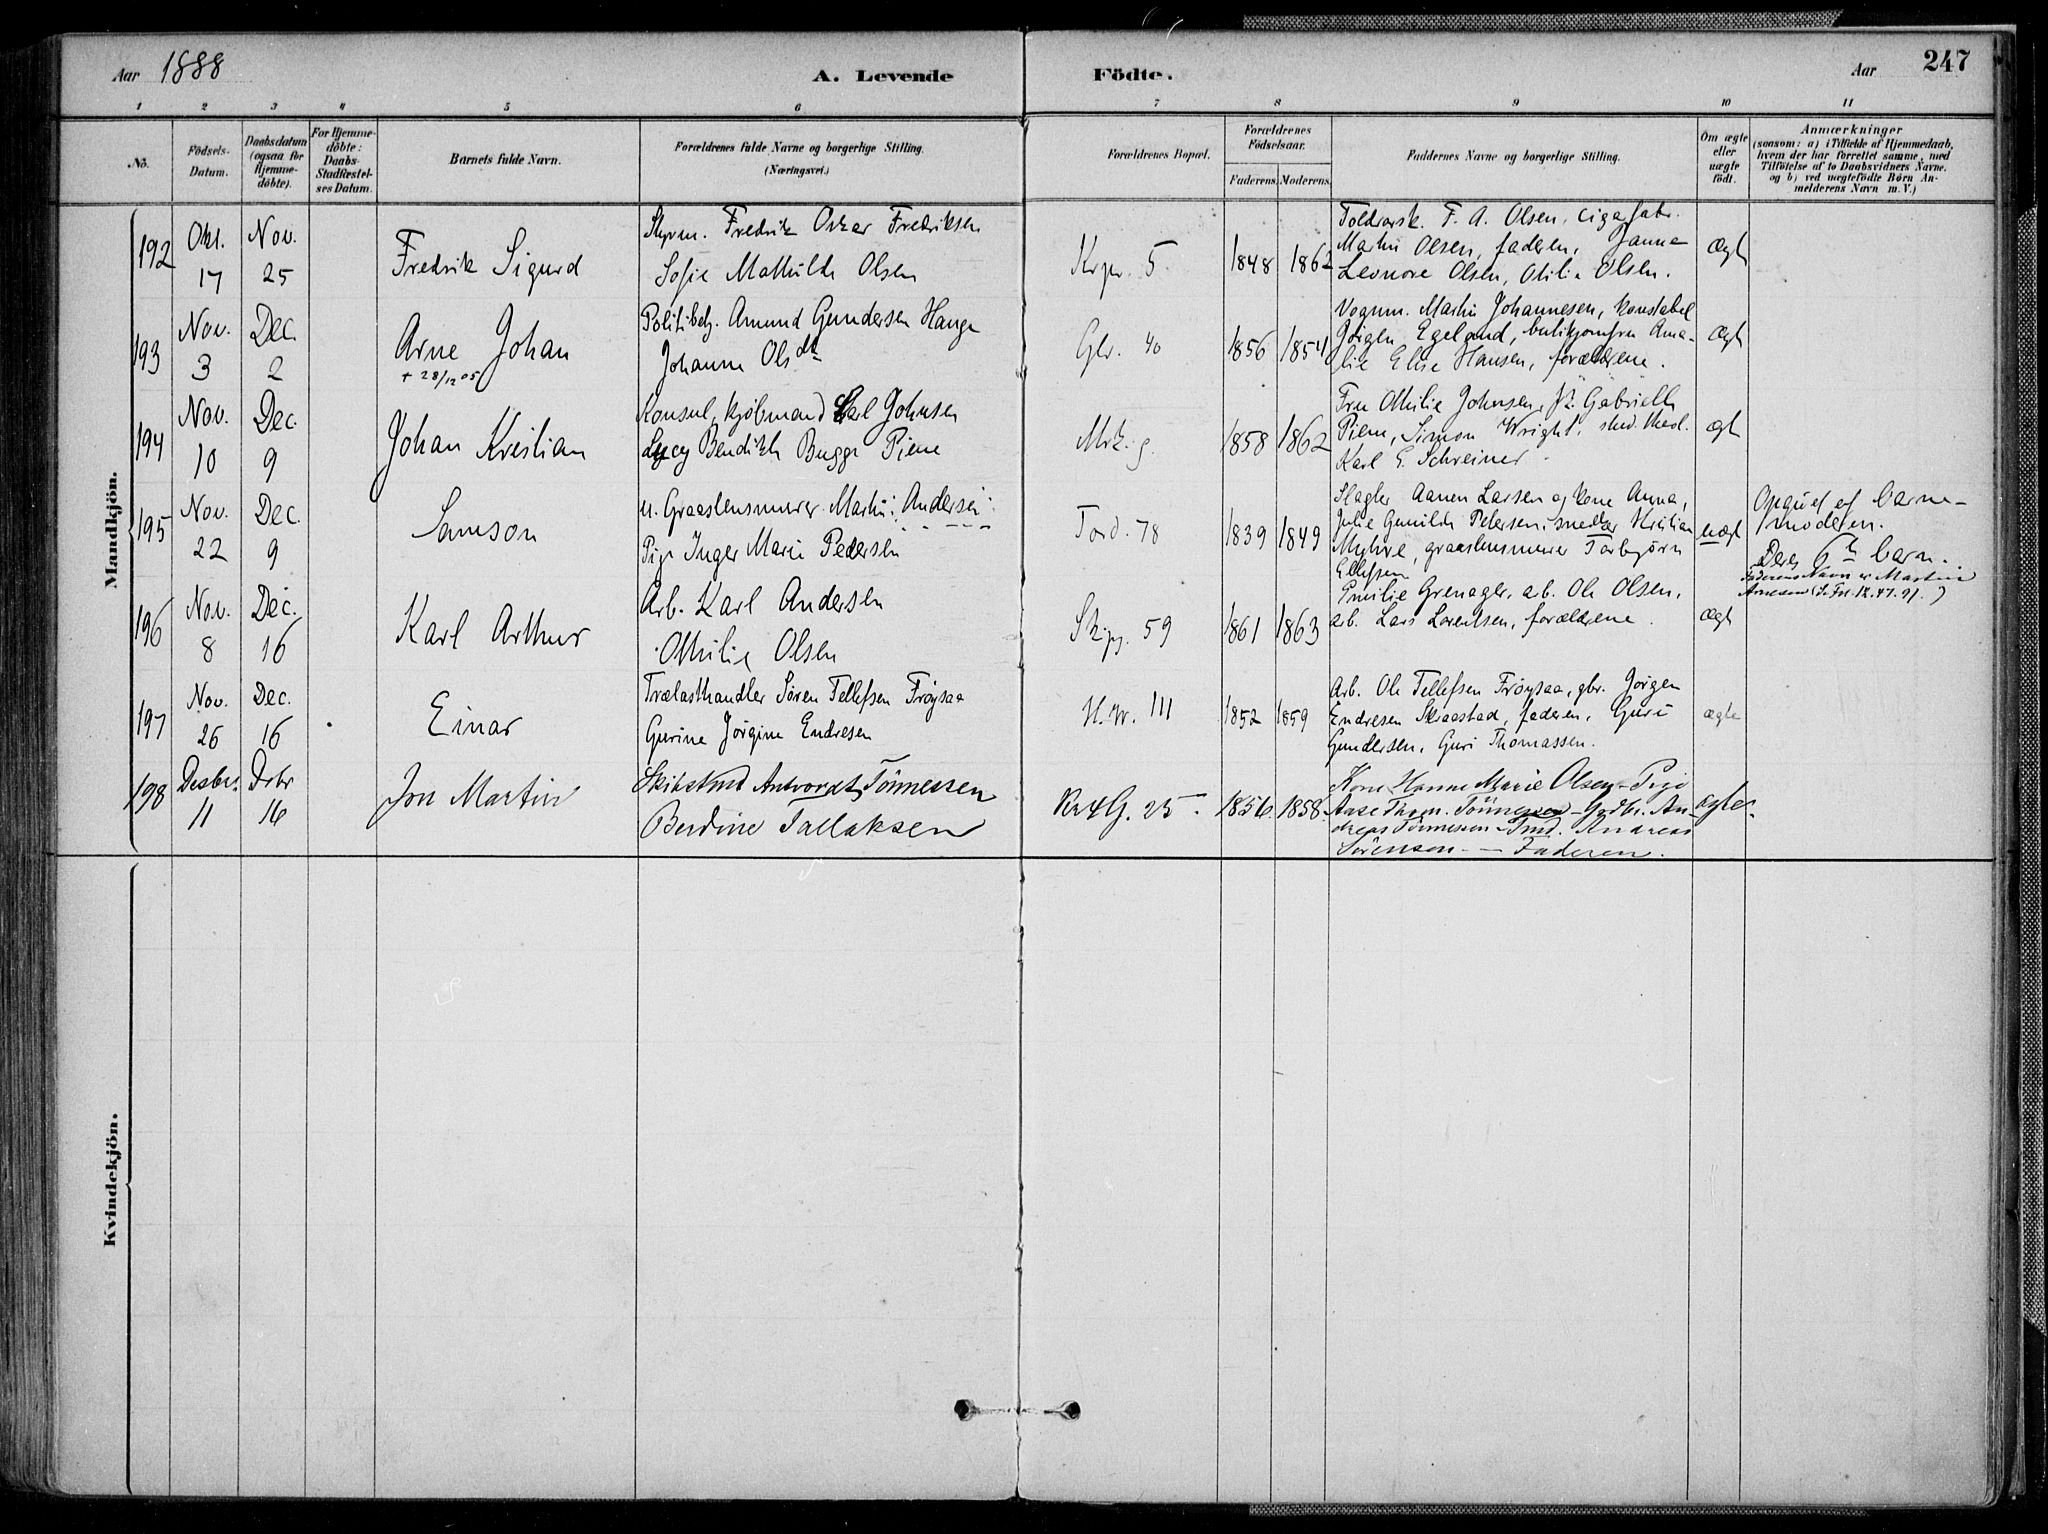 Aar 1888
A. Levende Födte.
Aar 247
1 2 3 4 5 6 7 8 9 10 11
No.
Födsels-Datum.
Daabsdatum (ogsaa for Hjemme-döbte).
For Hjemme-döbte: Daabs-Stadfæstelses Datum.
Barnets fulde Navn.
Forældrenes fulde Navne og borgerlige Stilling. (Næringsvei.)
Forældrenes Bopæl.
Forældrenes Födselsaar.
Faderens. Moderens.
Faddernes Navne og borgerlige Stilling.
Om ægte eller uægte födt.
Anmærkninger
(saasom: a) i Tilfælde af Hjemmedaab, hvem der har forrettet samme, med Tilföielse af to Daabsvidners Navne, og b) ved uægtefödte Börn Anmelderens Navn m. V.)
Mandkjön.
192 Okt. 17 Nov. 25
Fredrik Sigurd
Styrm. Fredrik Oskar Fredriksen
Sofie Mathilde Olsen
5 1848 1862
F. A. Olsen,
Martin Olsen, faderen, Janna
Leonore Olsen, Otilie Olsen.
ægt
193 Nov. 3 Dec. 2
Arne Johan
+ 28/12 05
Politibetj. Amund Gundersen Hauge
Johanne Olsdt
Glv. 40 1856 1854
Vognm. Martin Johannesen, konstabel
Jörgen Egeland, butikjomfru Ama-
lie Elise Hansen, forældrene.
ægt
194 Nov. 10 Dec. 9
Johan Kristian
Konsul, kjöbmand Carl Johnsen
Lucy Bendikte Bugge Piene
Mrk. g. 1858 1862
Fru Othilie Johnsen, Fr. Gabrielle
Piene, Simon Wright, stud. med.
Karl E. Schreiner.
ægt
195 Nov. 22 Dec. 9
Samson
u. Graastensmurer Martin Andersen
Pige Inger Marie Pedersen
Tord. 78 1839 1849
Slagter Aanen Larsen og kone Anna,
Julie Gunilde Petersen, Kristian
Myhre, graastensmurer Torbjörn
Ellefsen
uægt
Opgivet af barne-
moderen.
Deres 6te barn.
Faderens Navn er Martin
Arnesen
196 Nov. 8 Dec. 16
Karl Arthur
Arb. Karl Andersen
Othilie Olsen
Skipp. 59 1861 1863
Emilie Grenager, arb. Ole Olsen,
arb. Lars Lorentsen, forældrene.
ægt
197 Nov. 26 Dec. 16
Einar
Trælasthandler Sören Tellefsen Fröysaa
Gurine Jörgine Endresen
H. W. 111 1852 1859
Arb. Ole Tellefsen Fröysaa, gbr. Jörgen
Endresen Skraastad, faderen, Guri
Gundersen, Guri Thomassen.
ægte
198 Desbr. 11 Dsbr 16
Jon Martin
Skibstmd Antvordt Tönnessen
Berdine Tallaksen
25 1856. 1858.
Kone Hanne Marie Olsen - Pige
Aase Tönnessen - Grdbr. An-
dreas Tönnessen - Tmd. Andreas
Sörensen - Faderen.
ægte
Kvindekjön.